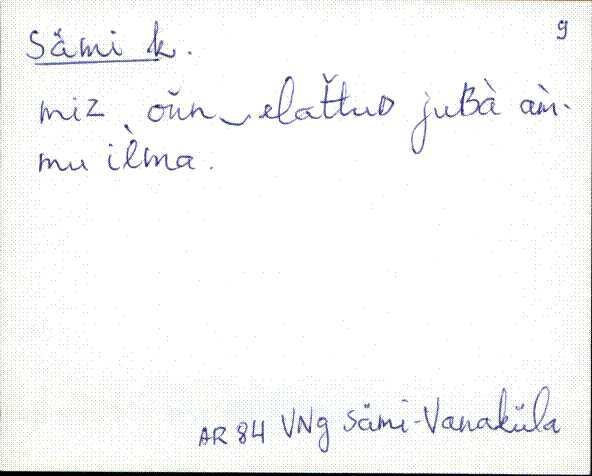 9
Sämi k.
miz oŭn‿elat̆tuᴅ juʙà àǹ-
mu ìlma.
AR 84 VNg Sämi-Vanaküla